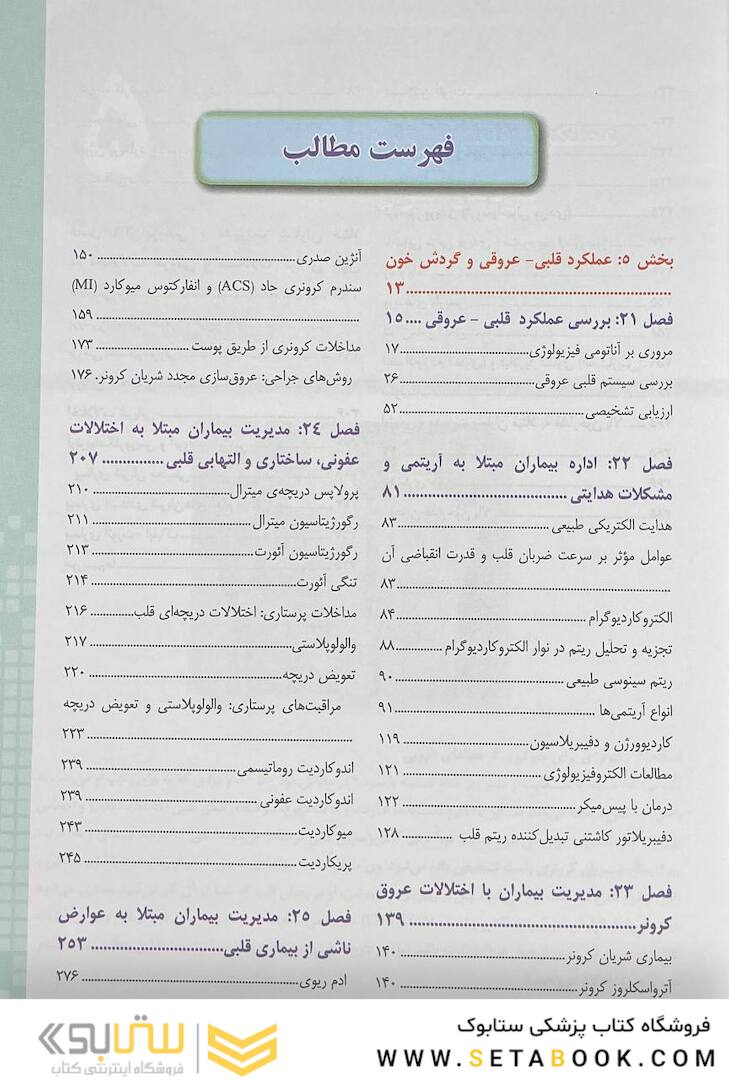 فهرست مطالب
بخش ۵: عملکرد قلبی- عروقی و گردش خون
۱۳
فصل ۲۱: بررسی عملکرد قلبی - عروقی .... ۱۵
مروری بر آناتومی فیزیولوژی ۱۷
بررسی سیستم قلبی عروقی ۲۶
ارزیابی تشخیصی ۵۲
فصل ۲۲: اداره بیماران مبتلا به آریتمی و
مشکلات هدایتی ۸۱
هدایت الکتریکی طبیعی ۸۳
عوامل مؤثر بر سرعت ضربان قلب و قدرت انقباضی آن
۸۳
الکتروکاردیوگرام ۸۴
تجزیه و تحلیل ریتم در نوار الکتروکاردیوگرام ۸۸
ریتم سینوسی طبیعی ۹۰
انواع آریتمی‌ها ۹۱
کاردیوورژن و دفیبریلاسیون ۱۱۹
مطالعات الکتروفیزیولوژی ۱۲۱
درمان با پیس‌میکر ۱۲۲
دفیبریلاتور کاشتنی تبدیل‌کننده ریتم قلب ۱۲۸
فصل ۲۳: مدیریت بیماران با اختلالات عروق
کرونر ۱۳۹
بیماری شریان کرونر ۱۴۰
آترواسکلروز کرونر ۱۴۰
آنژین صدری ۱۵۰
سندرم کرونری حاد (ACS) و انفارکتوس میوکارد (MI)
۱۵۹
مداخلات کرونری از طریق پوست ۱۷۳
روش‌های جراحی: عروق‌سازی مجدد شریان کرونر. ۱۷۶
فصل ۲۴: مدیریت بیماران مبتلا به اختلالات
عفونی، ساختاری و التهابی قلبی ۲۰۷
پرولاپس دریچه‌ی میترال ۲۱۰
رگورژیتاسیون میترال ۲۱۱
رگورژیتاسیون آئورت ۲۱۳
تنگی آئورت ۲۱۴
مداخلات پرستاری: اختلالات دریچه‌ای قلب ۲۱۶
والولوپلاستی ۲۱۷
تعویض دریچه ۲۲۰
مراقبت‌های پرستاری: والولوپلاستی و تعویض دریچه
۲۲۳
اندوکاردیت روماتیسمی ۲۳۹
اندوکاردیت عفونی ۲۳۹
میوکاردیت ۲۴۳
پریکاردیت ۲۴۵
فصل ۲۵: مدیریت بیماران مبتلا به عوارض
ناشی از بیماری قلبی ۲۵۳
ادم ریوی ۲۷۶
فروشگاه کتاب پزشکی ستابوک
WWW.SETABOOK.COM
ستابوک
فروشگاه اینترنتی کتاب